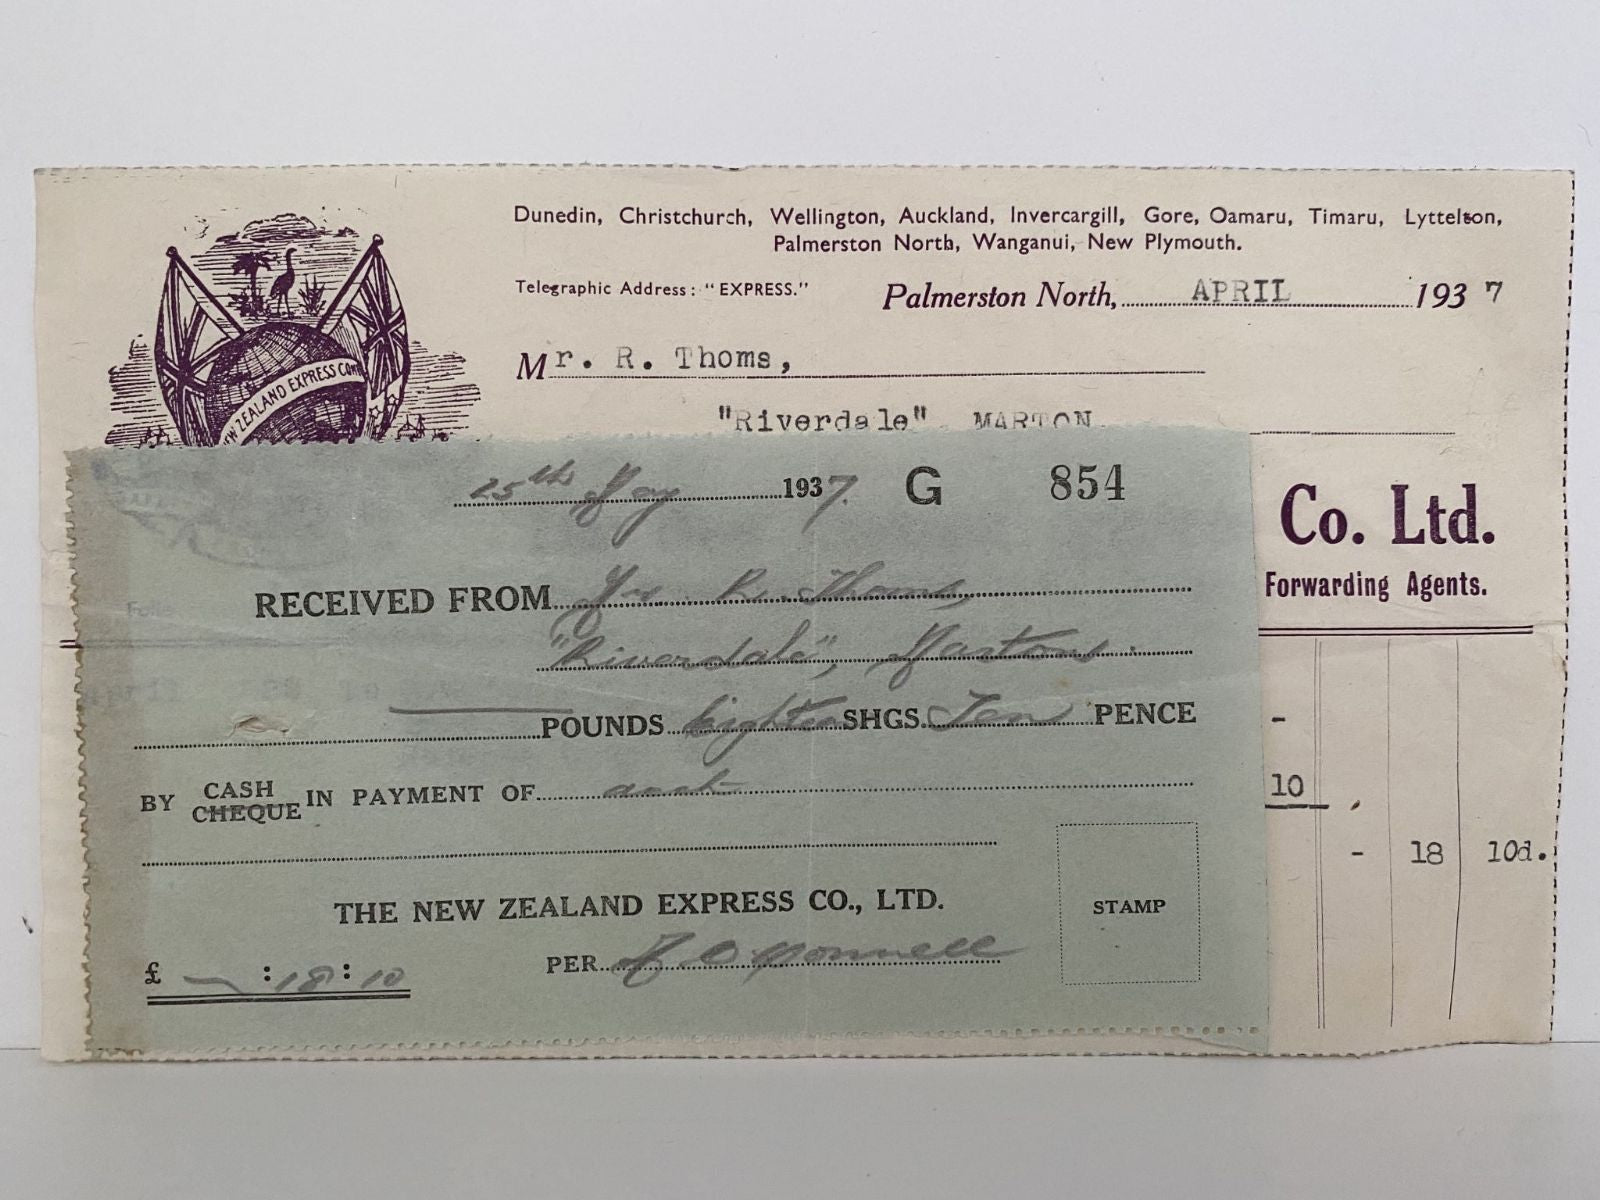 Dunedin, Christchurch, Wellington, Auckland, Invercargill, Gore, Oamaru, Timaru, Lyttelton,
Palmerston North, Wanganui, New Plymouth.
Telegraphic Address: "EXPRESS."
Palmerston North, APRIL 1937
Mr. R. Thoms,
"Riverdale", MARTON.
ZEALAND EXPRESS COM
Co. Ltd.
Forwarding Agents.
-
10
- 18 10d.
25th May 1937. G 854
RECEIVED FROM Mr R. Thoms,
"Riverdale", Marton.
POUNDS Eighteen SHGS. Ten PENCE
BY CASH CHEQUE IN PAYMENT OF acct
THE NEW ZEALAND EXPRESS CO., LTD.
STAMP
PER O'Donnell
£ — : 18 : 10